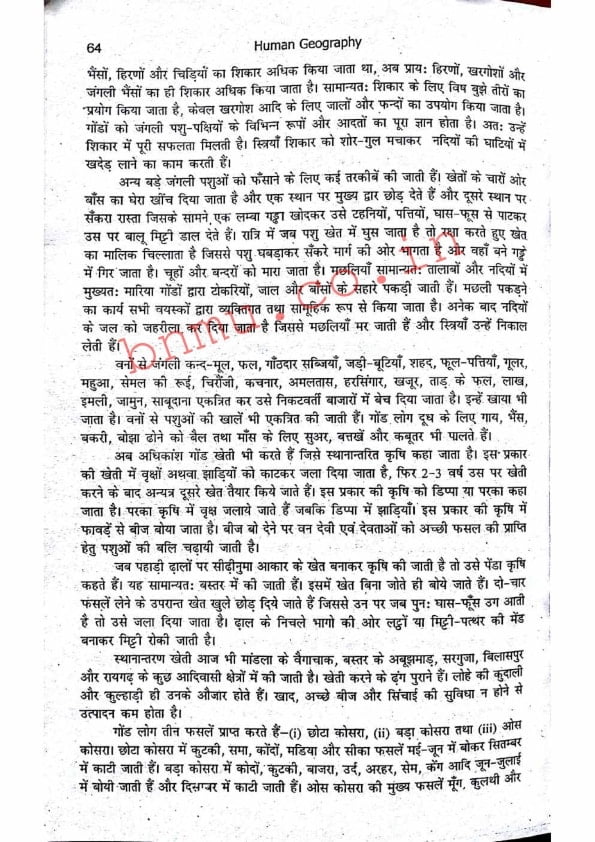 64
Human Geography
भैंसों, हिरणों और चिड़ियों का शिकार अधिक किया जाता था, अब प्राय: हिरणों, खरगोशों और
जंगली भैंसों का ही शिकार अधिक किया जाता है। सामान्यत: शिकार के लिए विष बुझे तीरों का
प्रयोग किया जाता है, केवल खरगोश आदि के लिए जालों और फन्दों का उपयोग किया जाता है।
गोंडों को जंगली पशु-पक्षियों के विभिन्न रूपों और आदतों का पूरा ज्ञान होता है। अत: उन्हें
शिकार में पूरी सफलता मिलती है। स्त्रियाँ शिकार को शोर-गुल मचाकर नदियों की घाटियों में
खदेड़ लाने का काम करती हैं।
अन्य बड़े जंगली पशुओं को फँसाने के लिए कई तरकीबें की जाती हैं। खेतों के चारों ओर
बाँस का घेरा खींच दिया जाता है और एक स्थान पर मुख्य द्वार छोड़ देते हैं और दूसरे स्थान पर
सँकरा रास्ता जिसके सामने एक लम्बा गड्ढा खोदकर उसे टहनियों, पत्तियों, घास-फूस से पाटकर
उस पर बालू मिट्टी डाल देते हैं। रात्रि में जब पशु खेत में घुस जाता है तो रक्षा करते हुए खेत
का मालिक चिल्लाता है जिससे पशु घबड़ाकर सँकरे मार्ग की ओर भागता है और वहाँ बने गड्ढे
में गिर जाता है। चूहों और बन्दरों को मारा जाता है। मछलियाँ सामान्यत: तालाबों और नदियों में
मुख्यत: मारिया गोंडों द्वारा टोकरियों, जाल और बाँसों के सहारे पकड़ी जाती हैं। मछली पकड़ने
का कार्य सभी वयस्कों द्वारा व्यक्तिगत तथा सामूहिक रूप से किया जाता है। अनेक बाद नदियों
के जल को जहरीला कर दिया जाता है जिससे मछलियाँ मर जाती हैं और स्त्रियाँ उन्हें निकाल
लेती हैं।
वनों से जंगली कन्द-मूल, फल, गाँठदार सब्जियाँ, जड़ी-बूटियाँ, शहद, फूल-पत्तियाँ, गूलर,
महुआ, सेमल की रूई, चिरौंजी, कचनार, अमलतास, हरसिंगार, खजूर, ताड़ के फल, लाख,
इमली, जामुन, साबूदाना एकत्रित कर उसे निकटवर्ती बाजारों में बेच दिया जाता है। इन्हें खाया भी
जाता है। वनों से पशुओं की खालें भी एकत्रित की जाती हैं। गोंड लोग दूध के लिए गाय, भैंस,
बकरी, बोझा ढोने को बैल तथा माँस के लिए सुअर, बत्तखें और कबूतर भी पालते हैं।
अब अधिकांश गोंड खेती भी करते हैं जिसे स्थानान्तरित कृषि कहा जाता है। इस प्रकार
की खेती में वृक्षों अथवा झाड़ियों को काटकर जला दिया जाता है, फिर 2-3 वर्ष उस पर खेती
करने के बाद अन्यत्र दूसरे खेत तैयार किये जाते हैं। इस प्रकार की कृषि को डिप्पा या परका कहा
जाता है। परका कृषि में वृक्ष जलाये जाते हैं जबकि डिप्पा में झाड़ियाँ। इस प्रकार की कृषि में
फावड़े से बीज बोया जाता है। बीज बो देने पर वन देवी एवं देवताओं को अच्छी फसल की प्राप्ति
हेतु पशुओं की बलि चढ़ायी जाती है।
जब पहाड़ी ढालों पर सीढ़ीनुमा आकार के खेत बनाकर कृषि की जाती है तो उसे पेंडा कृषि
कहते हैं। यह सामान्यत: बस्तर में की जाती हैं। इसमें खेत बिना जोते ही बोये जाते हैं। दो-चार
फसलें लेने के उपरान्त खेत खुले छोड़ दिये जाते हैं जिससे उन पर जब पुन: घास-फूँस उग आती
है तो उसे जला दिया जाता है। ढाल के निचले भागो की ओर लट्ठों या मिट्टी-पत्थर की मेंड
बनाकर मिट्टी रोकी जाती है।
स्थानान्तरण खेती आज भी मांडला के वैगाचाक, बस्तर के अबूझमाड़, सरगुजा, बिलासपुर
और रायगढ़ के कुछ आदिवासी क्षेत्रों में की जाती है। खेती करने के ढ़ंग पुराने हैं। लोहे की कुदाली
और कुल्हाड़ी ही उनके औजार होते हैं। खाद, अच्छे बीज और सिंचाई की सुविधा न होने से
उत्पादन कम होता है।
गोंड लोग तीन फसलें प्राप्त करते हैं–(i) छोटा कोसरा, (ii) बड़ा कोसरा तथा (iii) ओस
कोसरा। छोटा कोसरा में कुटकी, समा, कोंदों, मडिया और सीका फसलें मई-जून में बोकर सितम्बर
में काटी जाती हैं। बड़ा कोसरा में कोदों, कुटकी, बाजरा, उर्द, अरहर, सेम, कँग आदि जून-जुलाई
में बोयी जाती हैं और दिसम्बर में काटी जाती हैं। ओस कोसरा की मुख्य फसलें मूँग, कुलथी और
bnmu.co.in